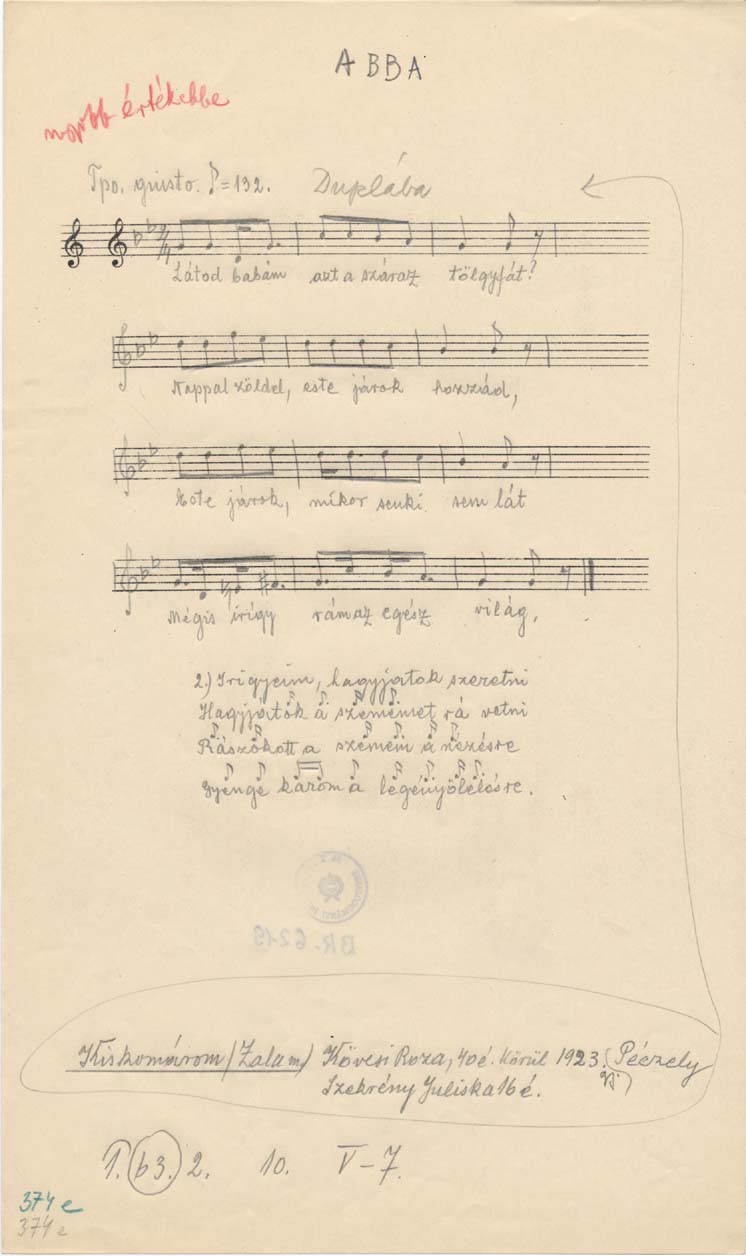 ABBA
értékebbe
Tpo. giusto. ♪=132. Duplába
2/4
Látod babám azt a száraz tölgyfát?
Nappal zöldel, este járok hozzád,
Este járok, mikor senki sem lát
Mégis irigy rám az egész világ.
2.) Irigyeim, hagyjatok szeretni
Hagyjátok a szememet rá vetni
Rászokott a szemem a nézésre
Gyenge karom a legényölelésre.
BR. 6219
Kiskomárom (Zala m) Kövesi Roza, 40 é. körül 1923. (Péczely
Szekrény Juliska 16 é.
1. b3. 2. 10. V-7.
374 e
374 e